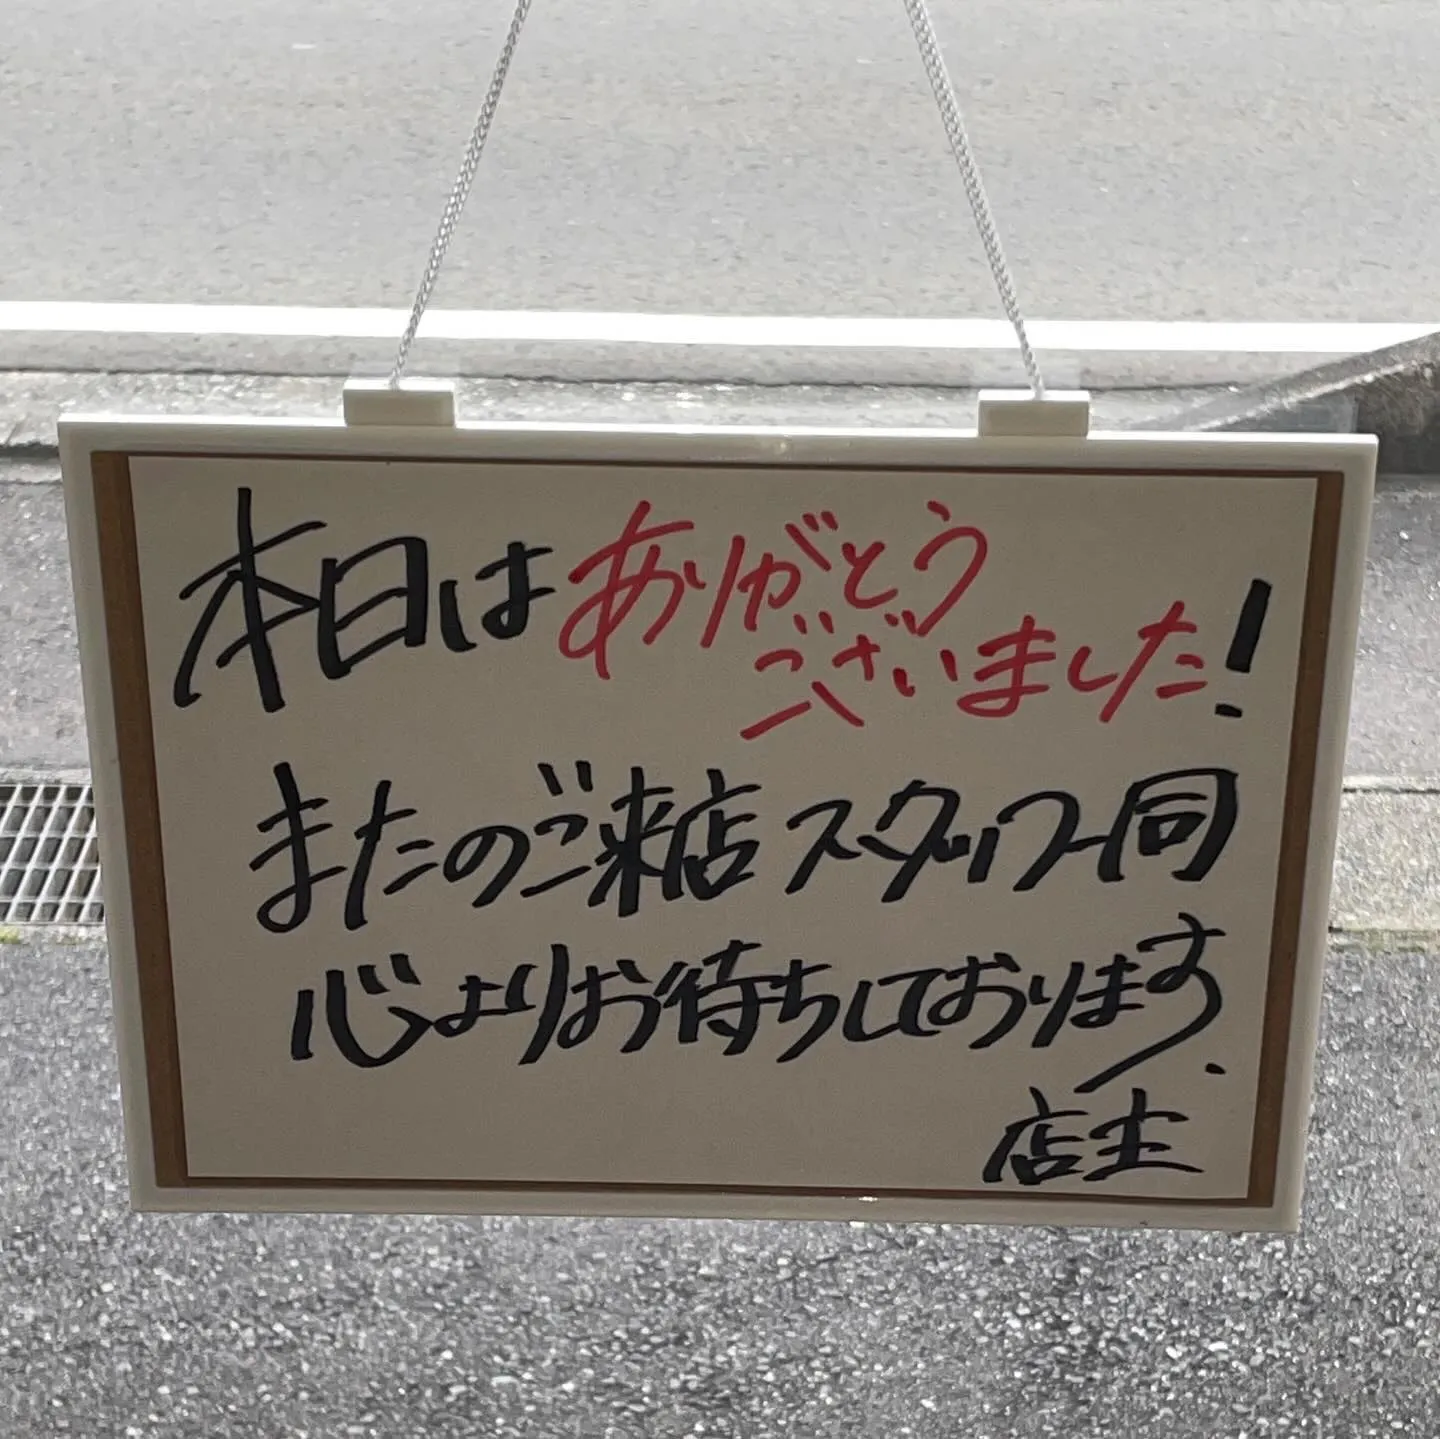 本日はありがとう
ございました!
またのご来店スタッフ一同
心よりお待ちしております.
店主